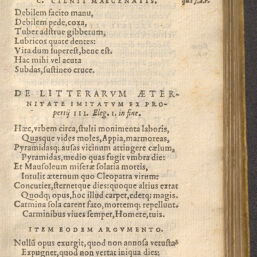 C. CILNII MAECENATIS.
Debilem facito manu,
Debilem pede, coxa,
Tuber adstrue gibberum,
Lubricos quate dentes:
Vita dum superest, bene est.
Hac mihi vel acuta
Subdas, sustineo cruce.
DE LITTERARVM ÆTER-
NITATE IMITATVM EX PRO-
pertij III. Eleg. 1. in fine.
Hæc, vrbem circa, stulti monimenta laboris,
Quasque vides moles, Appia, marmoreas,
Pyramidasq; ausas vicinum attingere cælum,
Pyramidas, medio quas fugit vmbra die:
Et Mausoleum miseræ solatia mortis,
Intulit æternum quo Cleopatra virum:
Concutiet, sternetque dies: quoque altius extat
Quodq; opus, hoc illud carpet, edetq; magis.
Carmina sola carent fato, mortemq; repellunt.
Carminibus viues semper, Homere, tuis.
ITEM EODEM ARGVMENTO.
Nullū opus exurgit, quod non annosa vetustas
Expugnet, quod non vertat iniqua dies: